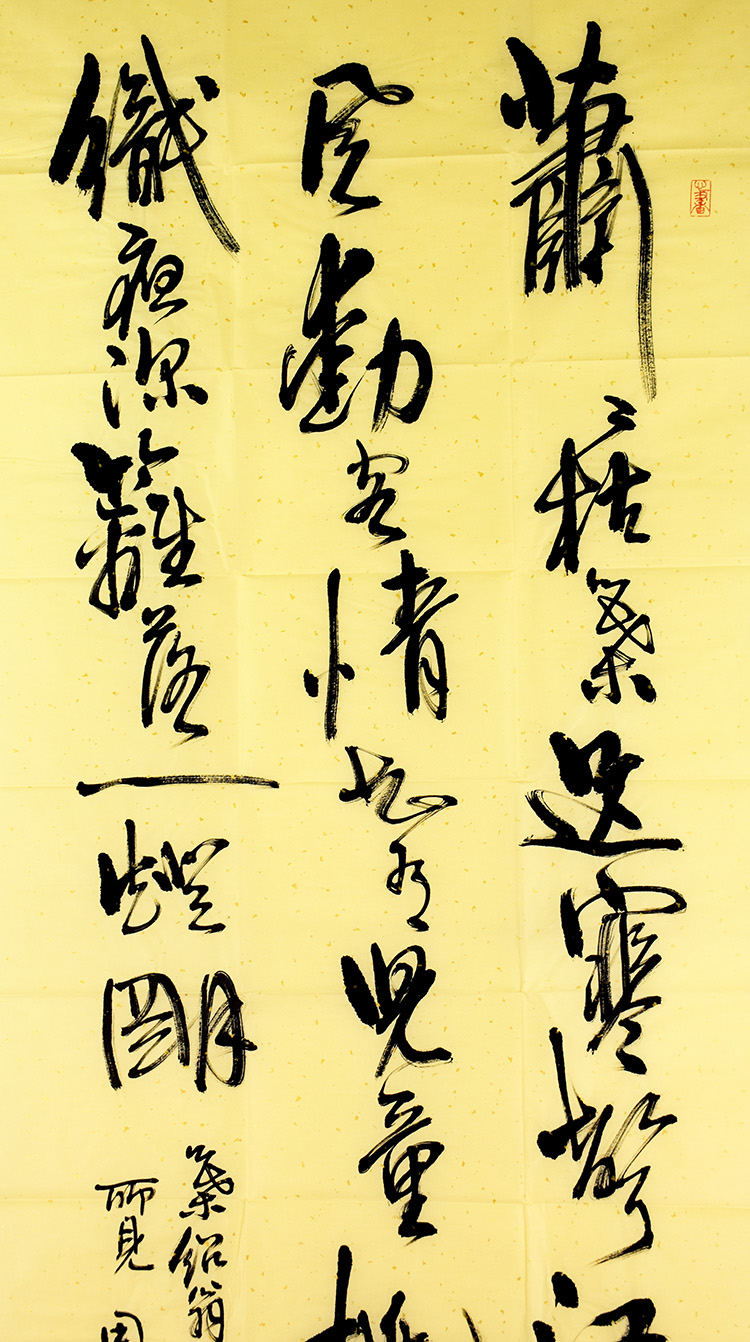 蕭〻梧葉送寒聲江
風動客情知有兒童挑
織夜深籬落一燈朙
葉紹翁
所見